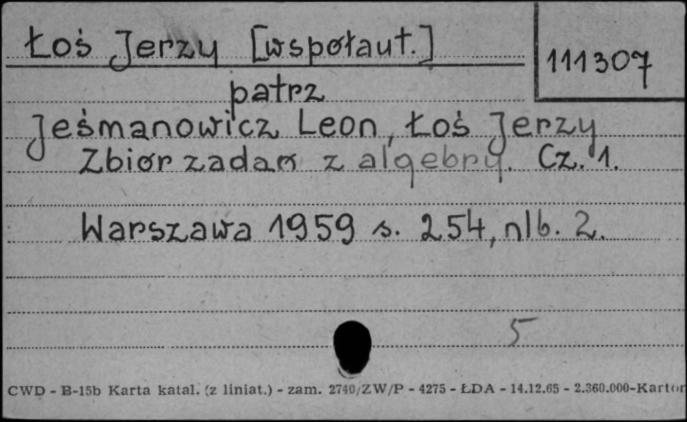 Łoś Jerzy [współaut.]
111307
patrz
Jeśmanowicz Leon, Łoś Jerzy
Zbiór zadań z algebry. Cz. 1.
Warszawa 1959 s. 254, nlb. 2.
5
CWD - B-15b Karta katal. (z liniat.) - zam. 2740/ZW/P - 4275 - ŁDA - 14.12.65 - 2.360.000-Karton